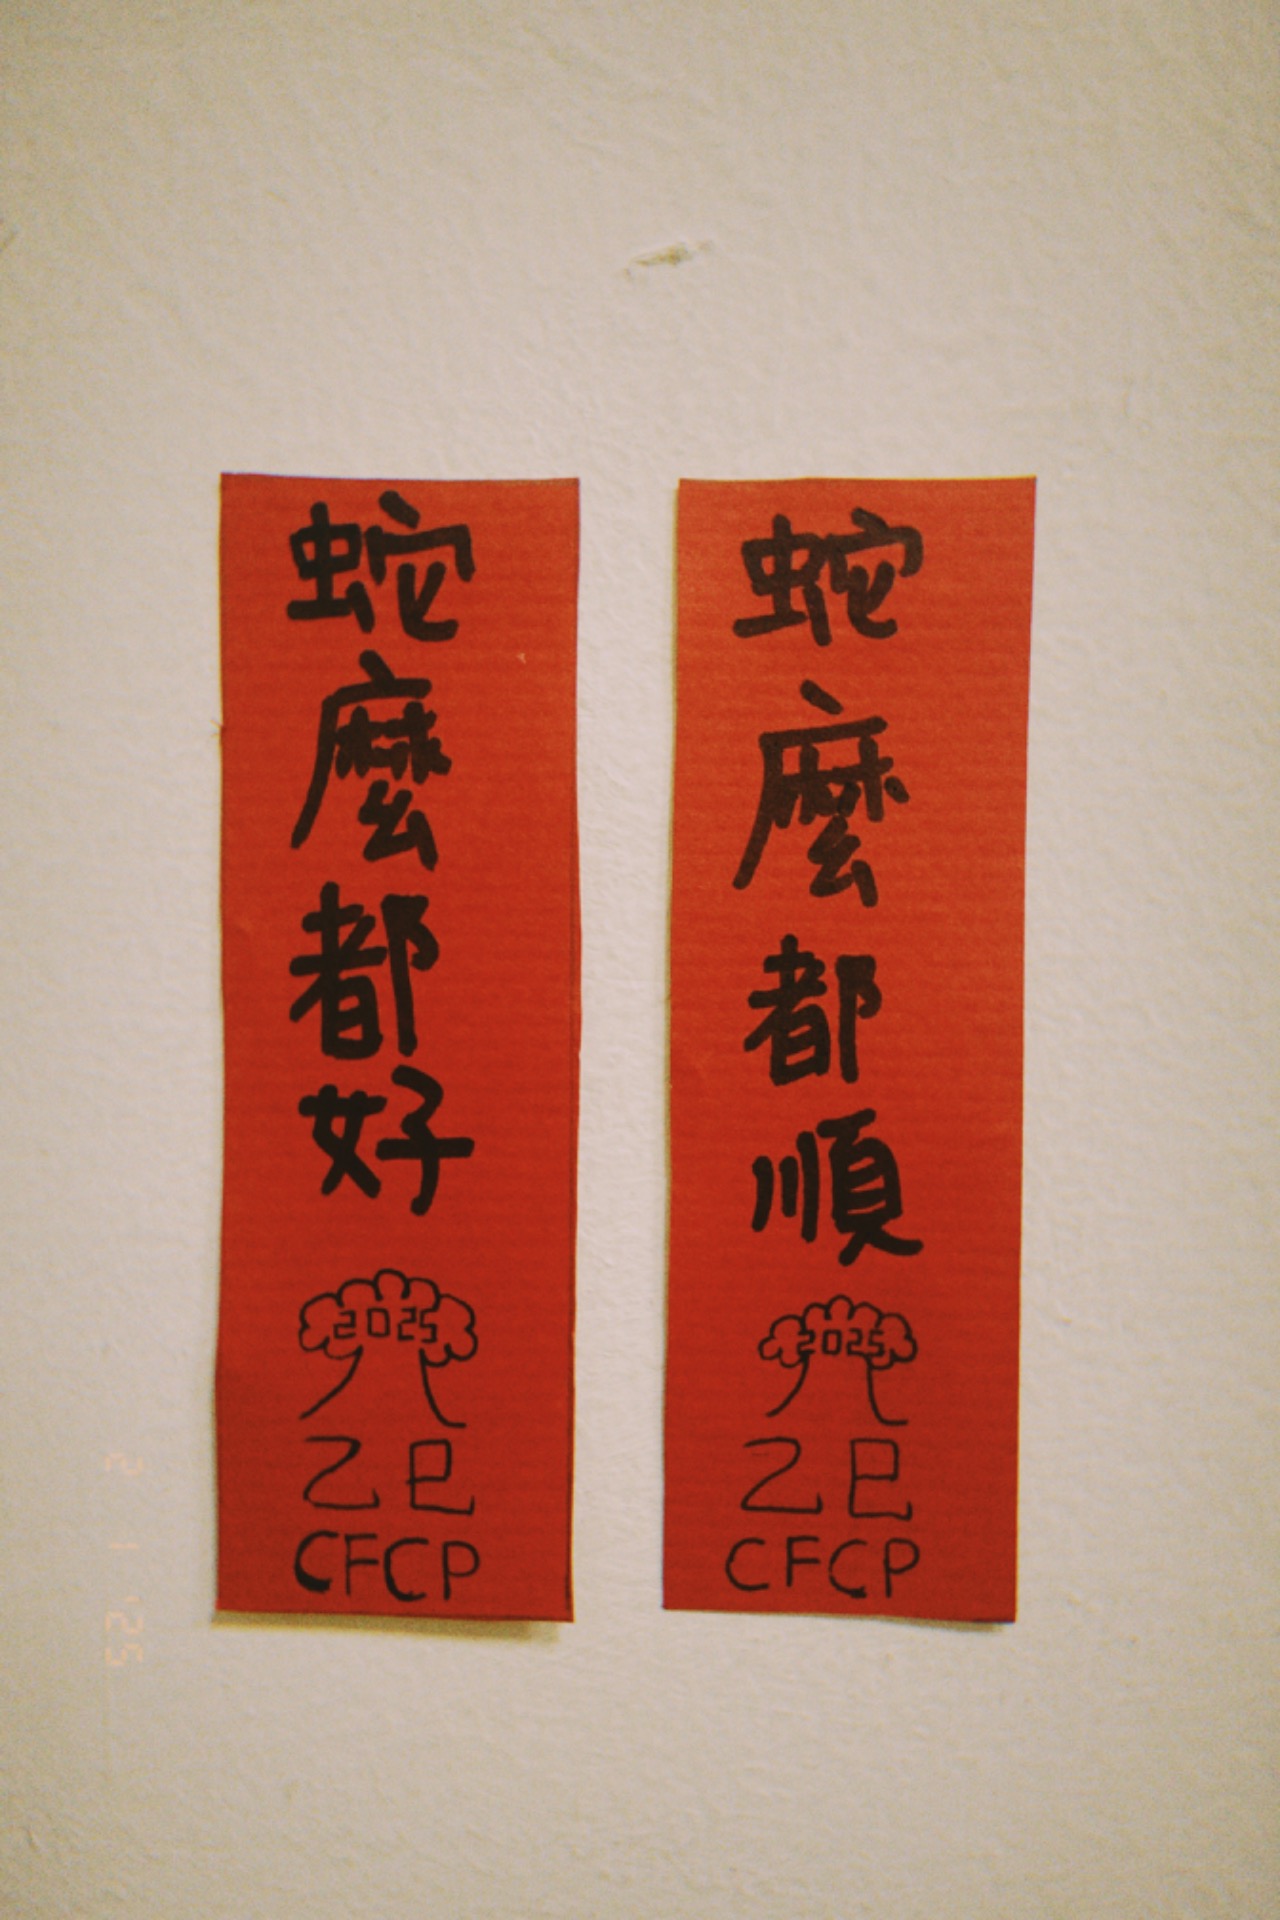 蛇麼都好
2025
乙巳
CFCP
蛇麼都順
2025
乙巳
CFCP
2 1 '25